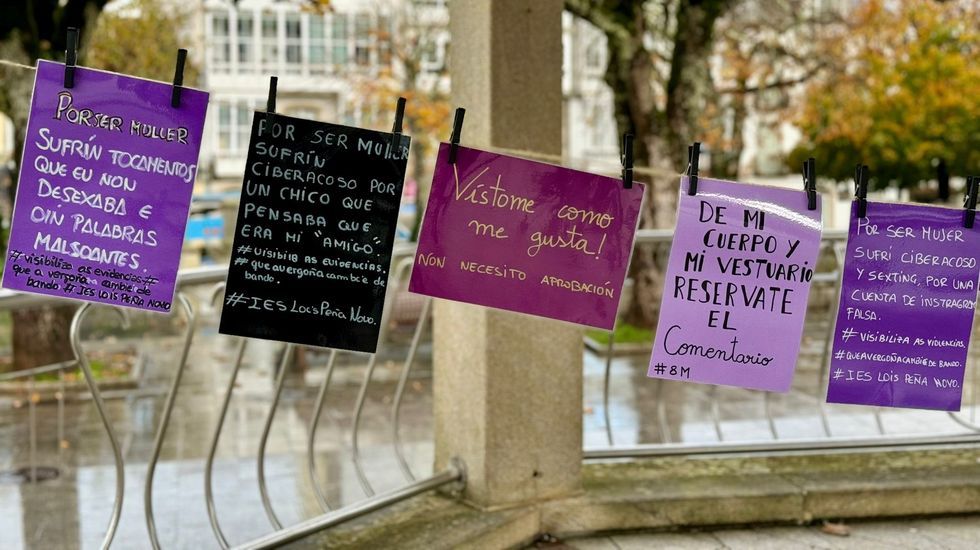 POR SER MULLER
SUFRÍN TOCAMENTOS
QUE EU NON
DESEXABA E
OIN PALABRAS
MALSOANTES
#visibiliza as evidencias #
que a vergoña cambie de
bando. #IES LOIS PEÑA NOVO
POR SER MULLER
SUFRÍN
CIBERACOSO POR
UN CHICO QUE
PENSABA QUE
ERA MI "AMIGO".
#VISIBILIZA AS EVIDENCIAS.
#que avergoña cambie de
bando.
#IES LOIS PEÑA NOVO.
Vístome como
me gusta!
NON NECESITO APROBACIÓN
DE MI
CUERPO Y
MI VESTUARIO
RESERVATE
EL
Comentario
#8M
POR SER MUJER
SUFRÍ CIBERACOSO
Y SEXTING, POR UNA
CUENTA DE INSTRAGRAM
FALSA.
#VISIBILIZA AS VIOLENCIAS.
#QUEAVERGOÑA CAMBIE DE BANDO.
#IES LOIS PEÑA NOVO.